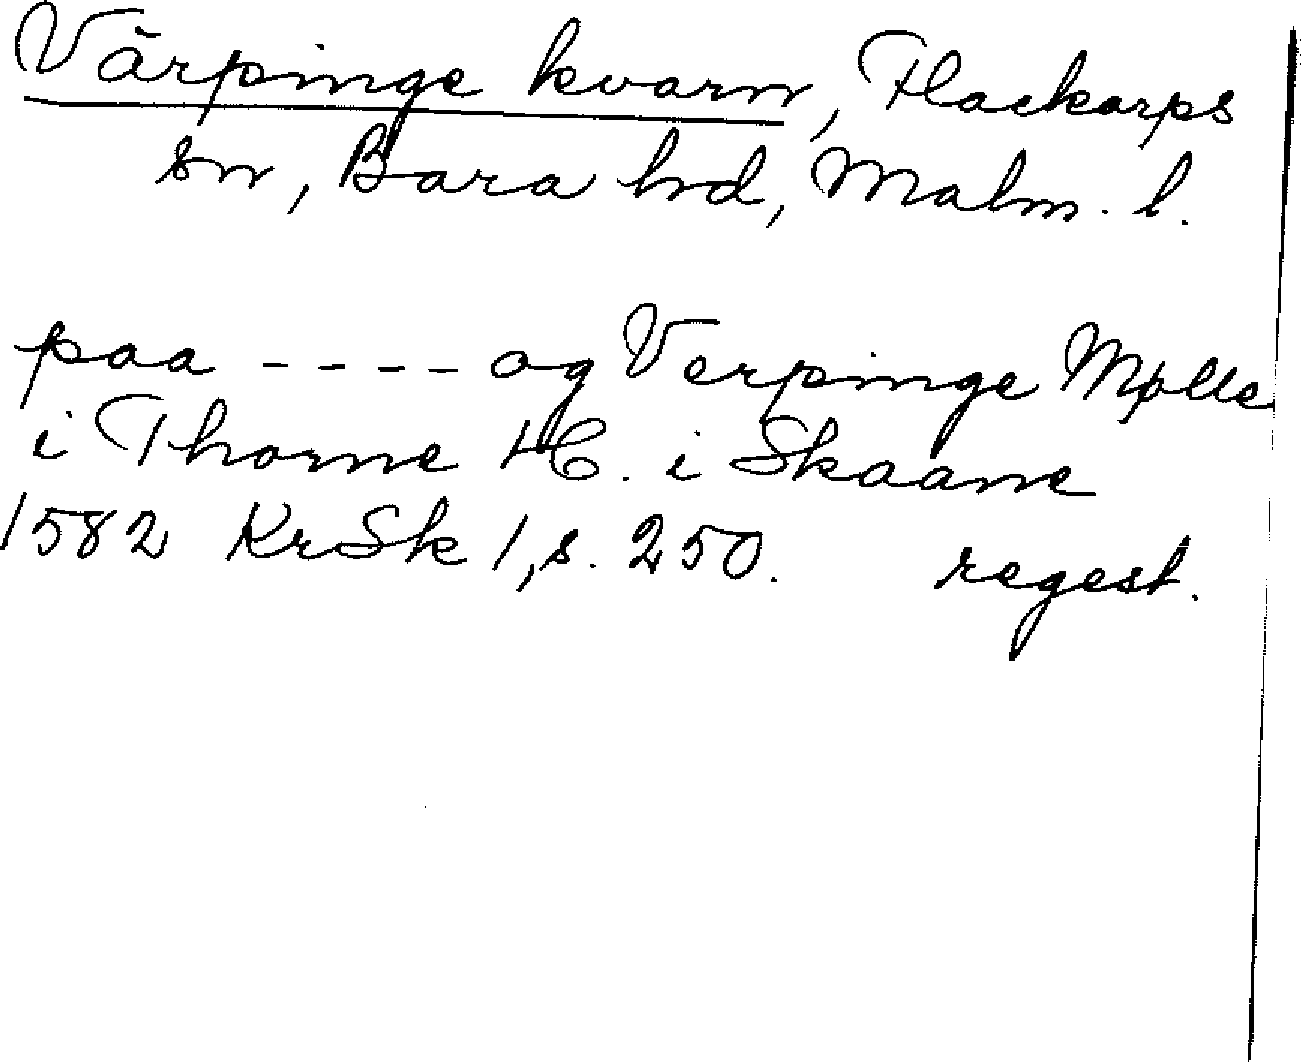 Värpinge kvarn, Flackarps
sn, Bara hd, Malm. l.
paa ---- og Verpinge Mølle
i Thorne H. i Skaane
1582 KrSk 1, s. 250. regest.